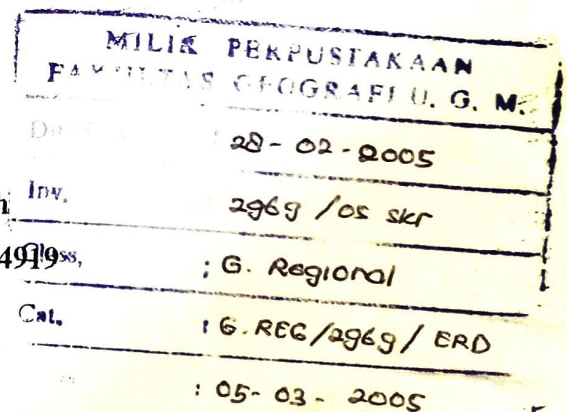 MILIK PERPUSTAKAAN
FAKULTAS GEOGRAFI U. G. M.
: 28 - 02 - 2005
Inv. 2969 / 05 skr
4919
Class, : G. Regional
Cat. : G. REG/2969/ ERD
: 05- 03 - 2005